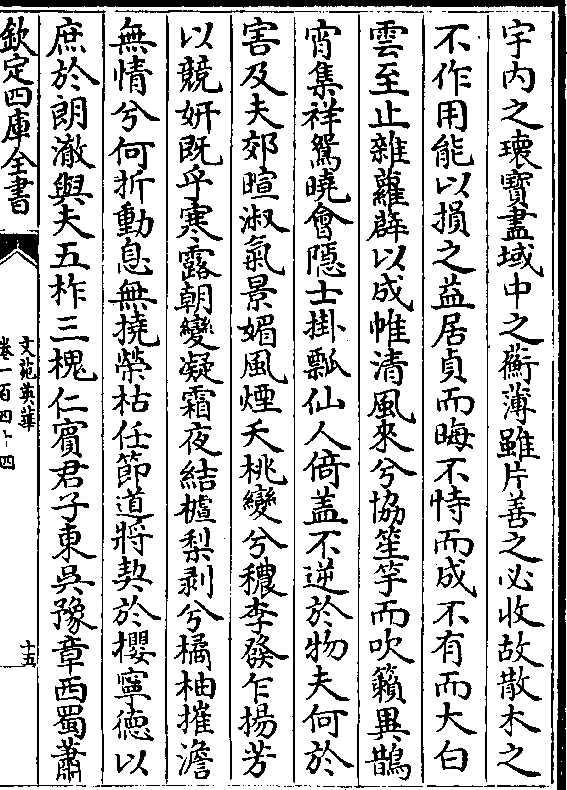 宇内之瓌寳盡域中之蘅薄雖片善之必收故散木之
不作用能以損之益居貞而晦不恃而成不有而大白
雲至止雜蘿薜以成帷清風來兮協笙竽而吹籟異鵲
宵集祥鴛曉會隱士掛瓢仙人倚蓋不逆於物夫何於
害及夫郊暄淑氣景媚風煙夭桃變兮穠李發乍揚芳
以競妍既乎寒露朝變凝霜夜結樝梨剥兮橘柚摧澹
無情兮何折動息無撓榮枯任節道將契於攖寧德以
庶於朗澈與夫五柞三槐仁賔君子東吳豫章西蜀蕭
欽定四庫全書
文苑英華
卷一百四十四
十五